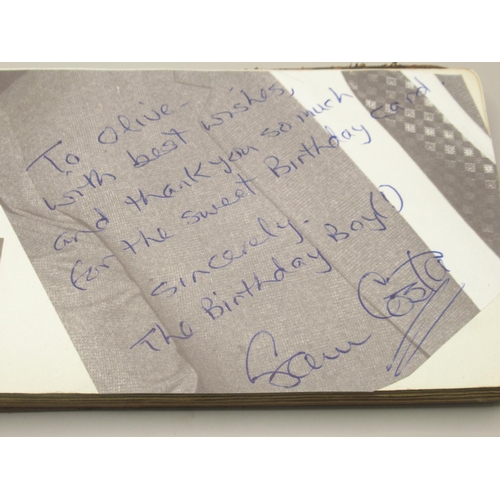 To Olive -
with best wishes,
and thank you so much
for the sweet Birthday Card
Sincerely.
The Birthday Boy(!)
Sam Costa